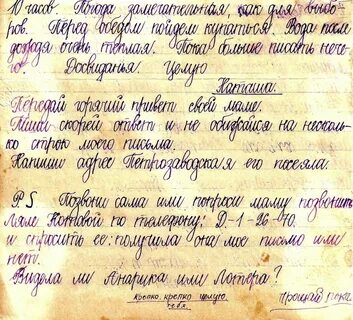 10 часов. Погода замечательная, как для выбо-
ров. Перед обедом пойдем купаться. Вода после
дождя очень теплая. Пока больше писать нече-
го. Досвиданья. Целую
Наташа.
Передай горячий привет своей маме.
Пиши скорей ответ и не обижайся на несколь-
ко строк моего письма.
Напиши адрес Петрозаводская его посеяла.
PS Позвони сама или попроси маму позвонить
Ляле Котовой по телефону: Д-1-26-70.
и спросить ее: получила она мое письмо или
нет.
Видела ли или Лотера?
крепко, крепко целую
тебя
Прощай пока